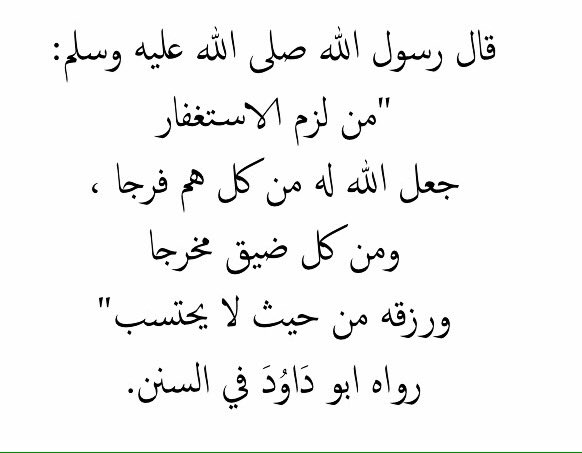 قال رسول الله صلى الله عليه وسلم:
"من لزم الاستغفار
جعل الله له من كل هم فرجا ،
ومن كل ضيق مخرجا
ورزقه من حيث لا يحتسب"
رواه ابو دَاوُدَ في السنن.